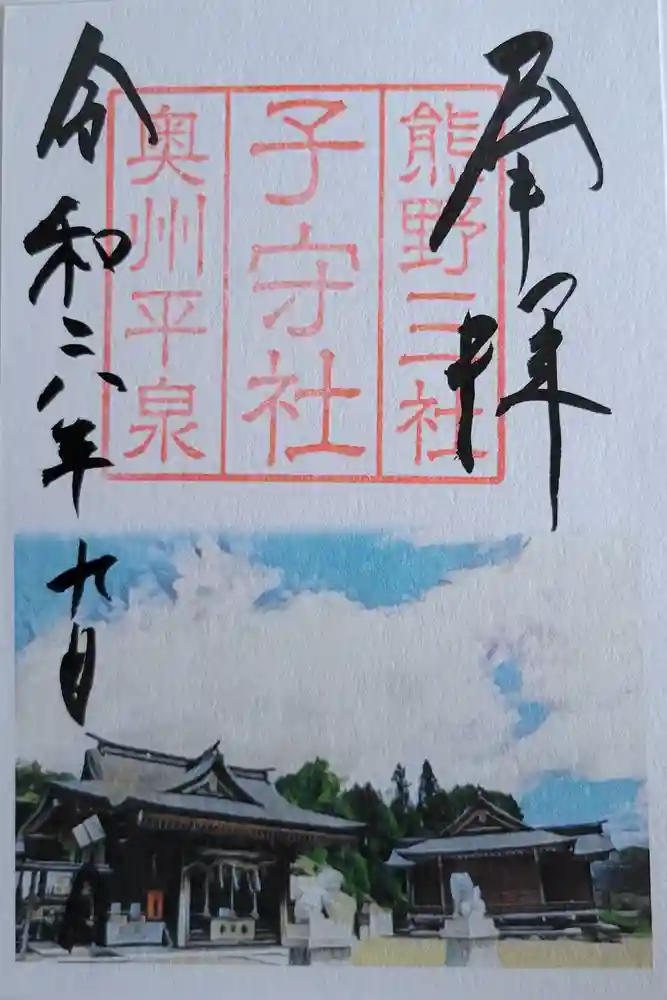 奉拝
熊野三社
子守社
奥州平泉
令和六年九月